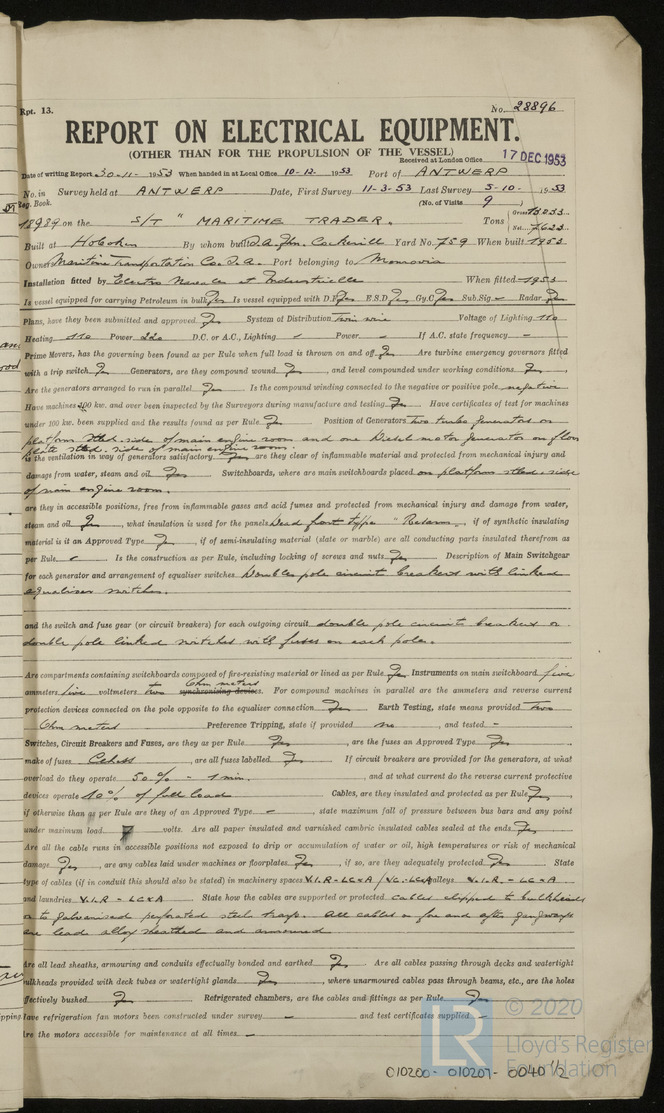 Rpt. 13.
No. 28896
REPORT ON ELECTRICAL EQUIPMENT.
(OTHER THAN FOR THE PROPULSION OF THE VESSEL)
Received at London Office 17 DEC 1953
Date of writing Report 30-11-1953 When handed in at Local Office 10-12-1953 Port of ANTWERP
No. in Reg. Book. Survey held at ANTWERP Date, First Survey 11-3-53 Last Survey 5-10-1953
(No. of Visits 9)
18989 on the S/T "MARITIME TRADER. Tons Gross 13033 Net 7623
Built at Hoboken By whom built S.A. John Cockerill Yard No. 759 When built 1953
Owners Maritime Transportation Co. S.A. Port belonging to Monrovia
Installation fitted by Electro Navale et Industrielle When fitted 1953
Is vessel equipped for carrying Petroleum in bulk Yes Is vessel equipped with D.F. Yes E.S.D. Yes Gy.C. Yes Sub.Sig. - Radar Yes
Plans, have they been submitted and approved Yes System of Distribution Two wire Voltage of Lighting 110
Heating 110 Power 220 D.C. or A.C., Lighting - Power - If A.C. state frequency -
Prime Movers, has the governing been found as per Rule when full load is thrown on and off Yes Are turbine emergency governors fitted
with a trip switch Yes Generators, are they compound wound Yes, and level compounded under working conditions Yes,
Are the generators arranged to run in parallel Yes Is the compound winding connected to the negative or positive pole negative
Have machines 100 kw. and over been inspected by the Surveyors during manufacture and testing Yes Have certificates of test for machines
under 100 kw. been supplied and the results found as per Rule Yes Position of Generators Two turbo generators on
platform stbd. side of main engine room and one Diesel motor generator on floor
plate stbd. side of main engine room.
is the ventilation in way of generators satisfactory Yes are they clear of inflammable material and protected from mechanical injury and
damage from water, steam and oil Yes Switchboards, where are main switchboards placed on platform stbd. side
of main engine room.
are they in accessible positions, free from inflammable gases and acid fumes and protected from mechanical injury and damage from water,
steam and oil Yes, what insulation is used for the panels Dead front type, if of synthetic insulating
material is it an Approved Type Yes, if of semi-insulating material (slate or marble) are all conducting parts insulated therefrom as
per Rule - Is the construction as per Rule, including locking of screws and nuts Yes Description of Main Switchgear
for each generator and arrangement of equaliser switches Double pole circuit breakers with linked
equaliser switches.
and the switch and fuse gear (or circuit breakers) for each outgoing circuit double pole circuit breakers or
double pole linked switches with fuses on each pole.
Are compartments containing switchboards composed of fire-resisting material or lined as per Rule Yes Instruments on main switchboard five
ammeters five voltmeters two Ohm meters synchronising devices. For compound machines in parallel are the ammeters and reverse current
protection devices connected on the pole opposite to the equaliser connection Yes Earth Testing, state means provided two
Ohm meters Preference Tripping, state if provided no, and tested -
Switches, Circuit Breakers and Fuses, are they as per Rule Yes, are the fuses an Approved Type Yes,
make of fuses, are all fuses labelled Yes If circuit breakers are provided for the generators, at what
overload do they operate 50% - 1 min., and at what current do the reverse current protective
devices operate 10% of full load Cables, are they insulated and protected as per Rule Yes,
if otherwise than as per Rule are they of an Approved Type -, state maximum fall of pressure between bus bars and any point
under maximum load 7 volts. Are all paper insulated and varnished cambric insulated cables sealed at the ends Yes
Are all the cable runs in accessible positions not exposed to drip or accumulation of water or oil, high temperatures or risk of mechanical
damage Yes, are any cables laid under machines or floorplates Yes, if so, are they adequately protected Yes State
type of cables (if in conduit this should also be stated) in machinery spaces V.I.R-LC&A/VC-LC&A galleys V.I.R.-LC&A
and laundries V.I.R-LC&A State how the cables are supported or protected cables clipped to bulkheads
or to galvanised perforated steel trays. All cables on fore and after gangways
are lead alloy sheathed and armoured
Are all lead sheaths, armouring and conduits effectually bonded and earthed Yes Are all cables passing through decks and watertight
bulkheads provided with deck tubes or watertight glands Yes, where unarmoured cables pass through beams, etc., are the holes
effectively bushed Yes Refrigerated chambers, are the cables and fittings as per Rule Yes
Have refrigeration fan motors been constructed under survey - and test certificates supplied -
Are the motors accessible for maintenance at all times -
LR © 2020
Lloyd's Register
Foundation
010200-010207-0040 1/2